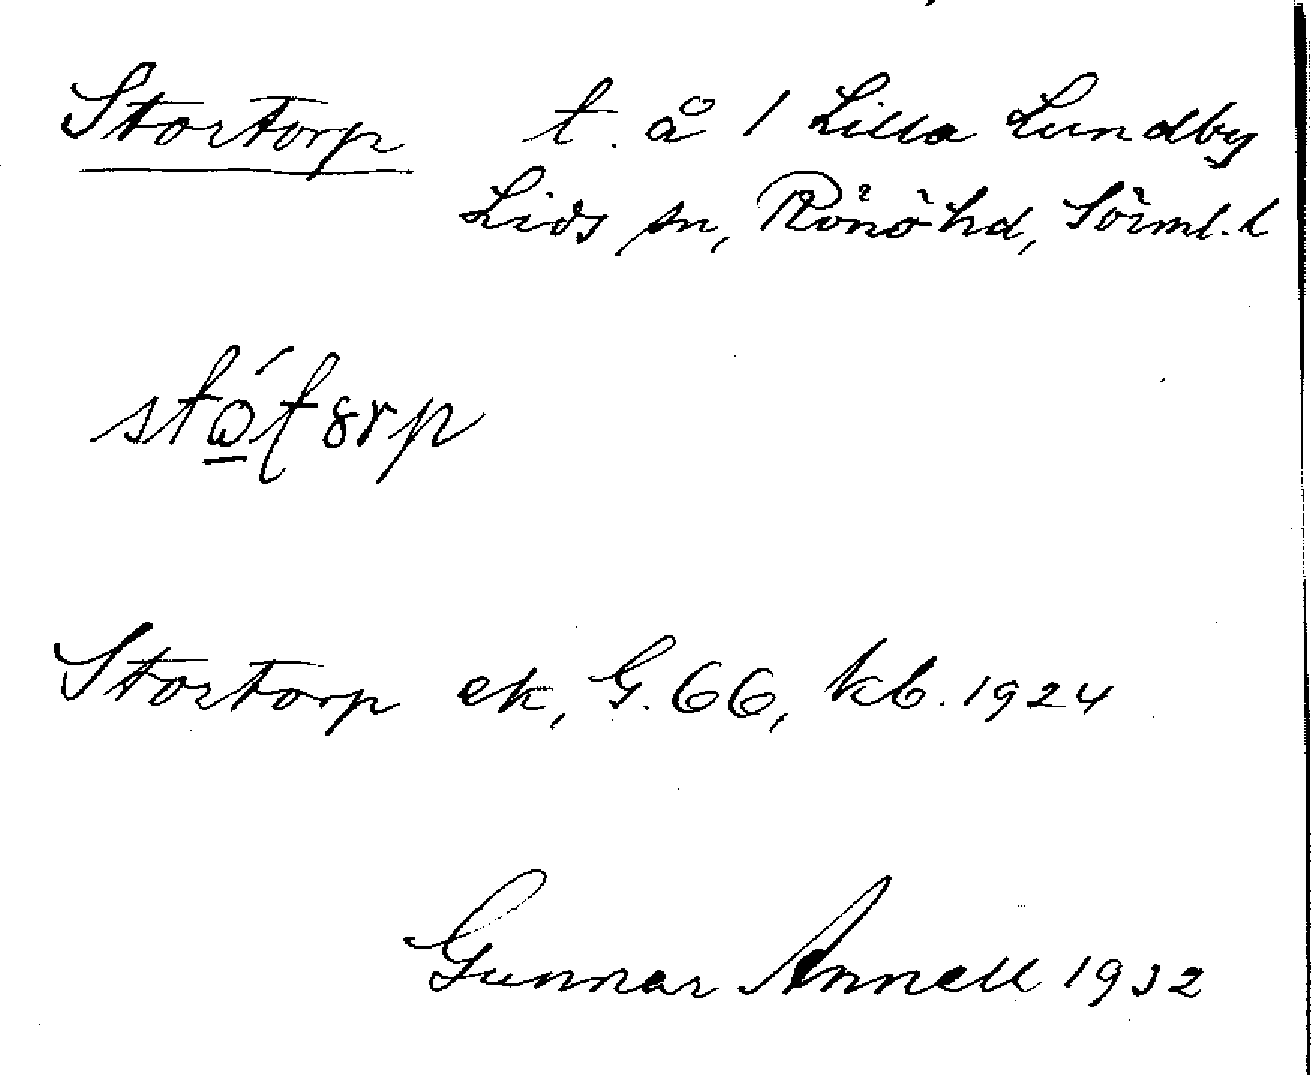 Stortorp t. å 1 Lilla Lundby
Lids sn, Rönö hd, Sörml. l
Stortorp ek, G. 66, kb. 1924
Gunnar Annell 1932